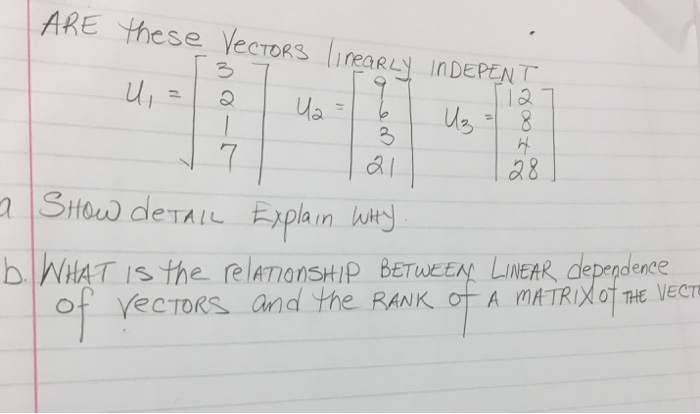 ARE these VECTORS linEARLY INDEPENT
U₁ = [3 2 1 7] U₂ = [9 6 3 21] U₃ = [12 8 4 28]
a SHOW deTAIL Explain WHY.
b. WHAT is the relATIONSHIP BETWEEN LINEAR dependence
of VECTORS and the RANK of A MATRIX of THE VECT